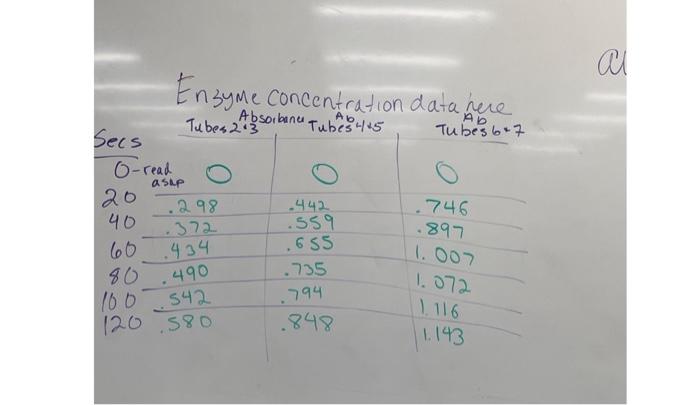 al
Enzyme concentration data here
Absorbance Ab Ab
Tubes 2+3 Tubes 4+5 Tubes 6+7
Secs
0-read asap 0 0 0
20 .298 .442 .746
40 .372 .559 .897
60 .434 .655 1.007
80 .490 .735 1.072
100 .542 .794 1.116
120 .580 .848 1.143